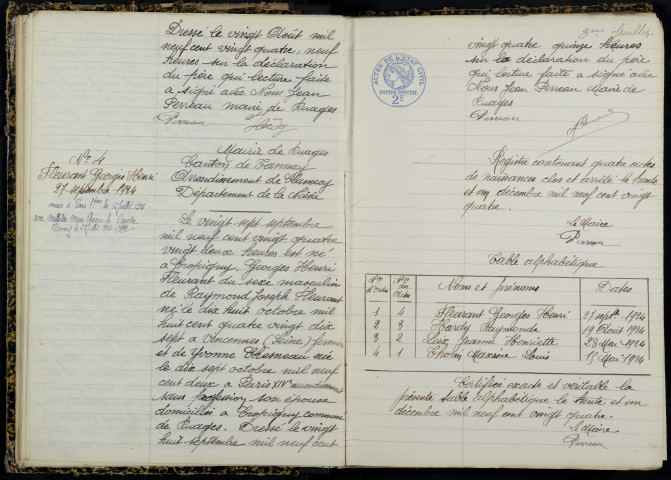 Dressé le vingt Août mil
neuf cent vingt quatre, neuf
heures sur la déclaration
du père qui lecture faite
a signé avec Nous Jean
Perreau maire de Ruages
Perreau
Hardy
Mairie de Ruages
Canton de Tannay
Arrondissement de Clamecy
Département de la Nièvre
N° 4
Fleurant Georges Henri
27 septembre 1924
Le vingt sept septembre
mil neuf cent vingt quatre
vingt deux heures est né
à Cropigny Georges Henri
Fleurant du sexe masculin
de Raymond Joseph Fleurant
né le dix huit octobre mil
huit cent quatre vingt dix
sept à Vincennes (Seine) fermier
et de Yvonne Chesneau née
le dix sept octobre mil neuf
cent deux à Paris XIVe arrondissement
sans profession, son épouse
domiciliés à Cropigny commune
de Ruages. Dressé le vingt
huit septembre mil neuf cent
3me feuillet
vingt quatre quinze heures
sur la déclaration du père
qui lecture faite a signé avec
Nous Jean Perreau Maire de
Ruages
Perreau
ACTES DE L'ETAT CIVIL
PAPIER SPECIAL
2E
Registre contenant quatre actes
de naissances clos et arrêté le trente
et un décembre mil neuf cent vingt
quatre.
Le Maire
Perreau
Table alphabétique
Nos d'ordre Nos des Actes Noms et prénoms Dates
1 4 Fleurant Georges Henri 27 septbre 1924
2 3 Hardy Raymonde 19 Août 1924
3 2 Leux Jeanne Henriette 28 Mai 1924
4 1 Tholin Maxime Louis 15 Mai 1924
Certifiée exacte et véritable la
présente table alphabétique le trente et un
décembre mil neuf cent vingt quatre.
Le Maire
Perreau